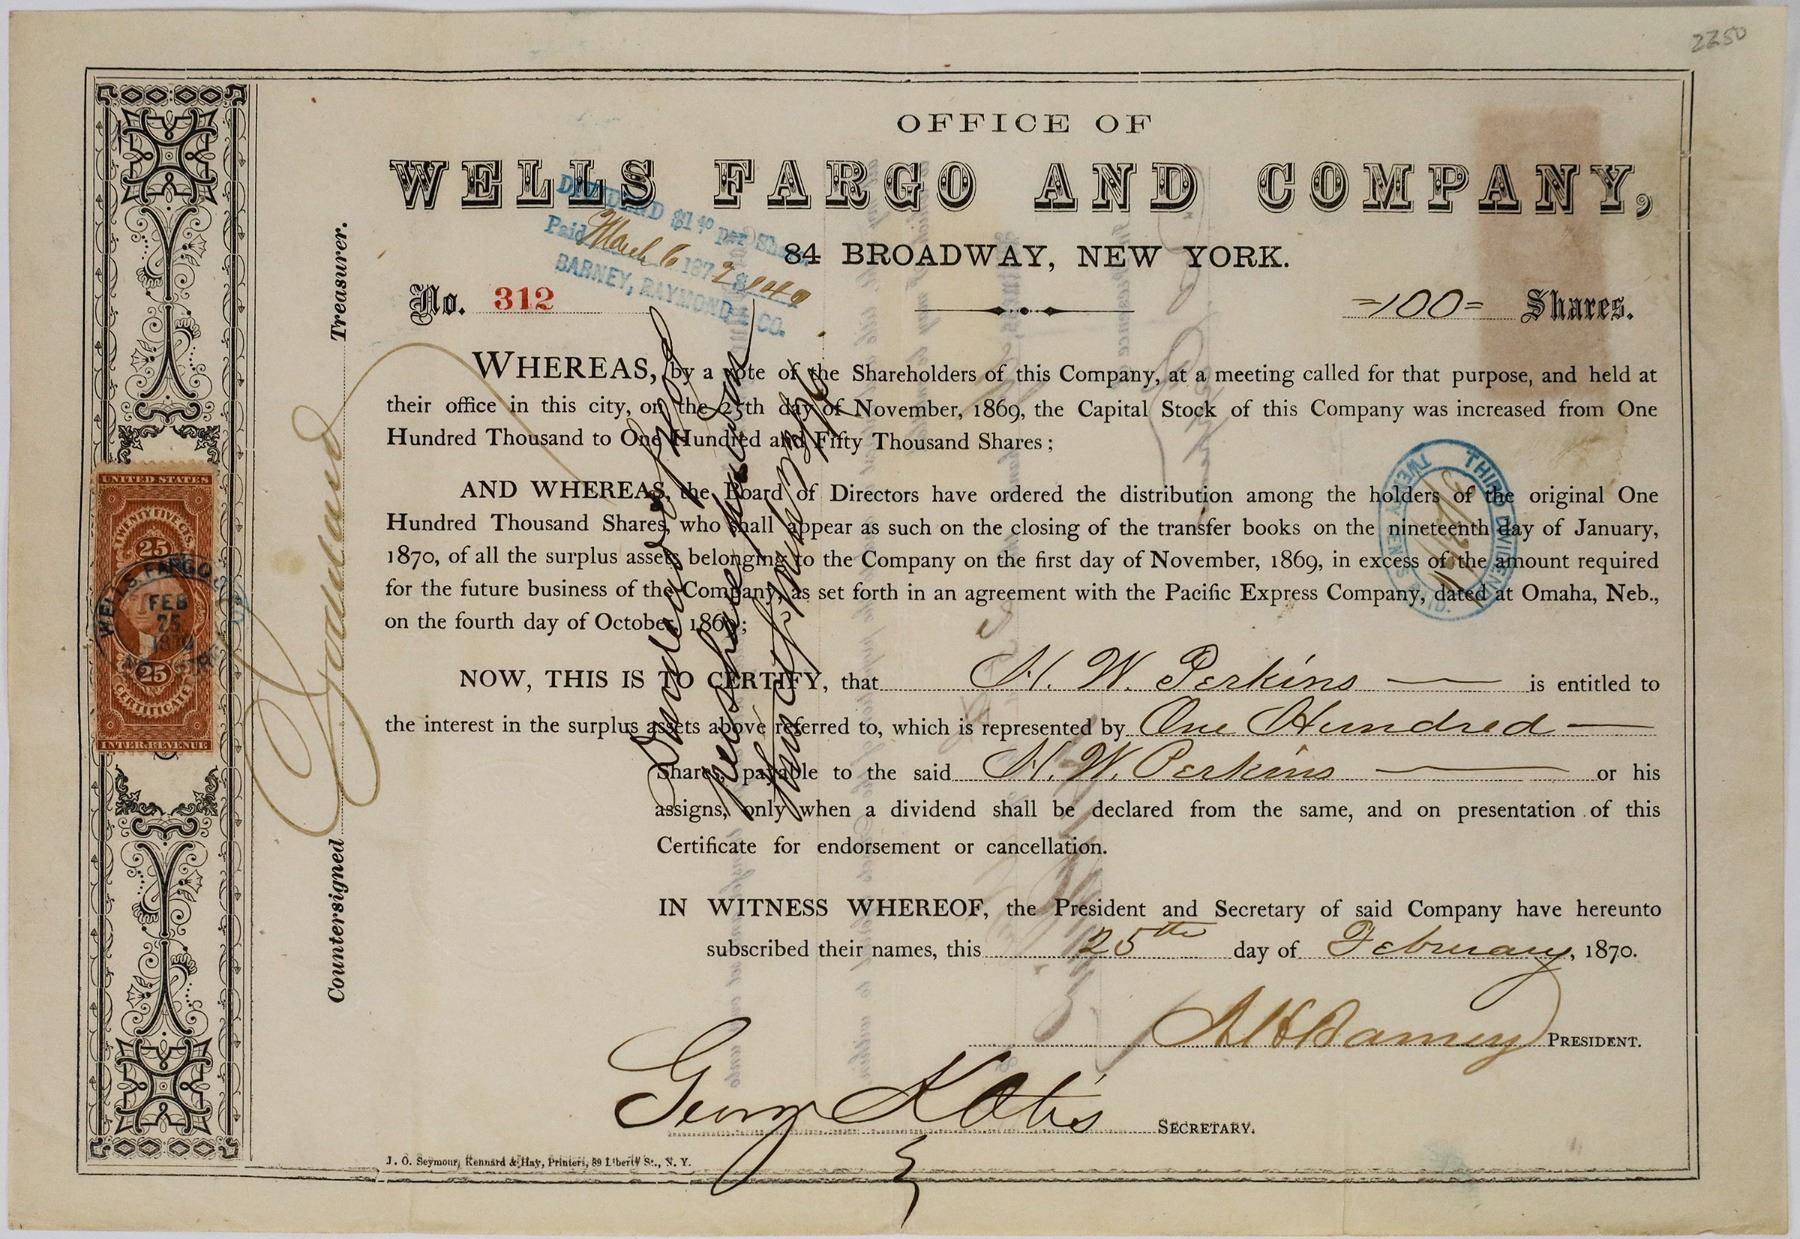 2250
OFFICE OF
WELLS FARGO AND COMPANY,
84 BROADWAY, NEW YORK.
DIVIDEND $1 40 per Share
Paid March 6 1872 $140
BARNEY, RAYMOND & CO.
No. 312
=100= Shares.
WHEREAS, by a vote of the Shareholders of this Company, at a meeting called for that purpose, and held at
their office in this city, on the 25th day of November, 1869, the Capital Stock of this Company was increased from One
Hundred Thousand to One Hundred and Fifty Thousand Shares;
AND WHEREAS, the Board of Directors have ordered the distribution among the holders of the original One
Hundred Thousand Shares, who shall appear as such on the closing of the transfer books on the nineteenth day of January,
1870, of all the surplus assets belonging to the Company on the first day of November, 1869, in excess of the amount required
for the future business of the Company, as set forth in an agreement with the Pacific Express Company, dated at Omaha, Neb.,
on the fourth day of October, 1869;
NOW, THIS IS TO CERTIFY, that H. W. Perkins is entitled to
the interest in the surplus assets above referred to, which is represented by One Hundred
Shares, payable to the said H. W. Perkins or his
assigns, only when a dividend shall be declared from the same, and on presentation of this
Certificate for endorsement or cancellation.
IN WITNESS WHEREOF, the President and Secretary of said Company have hereunto
subscribed their names, this 25th day of February, 1870.
A H Barney PRESIDENT.
George K Otis SECRETARY.
J. O. Seymour, Kennard & Hay, Printers, 89 Liberty St., N. Y.
Countersigned
Treasurer.
THIRD DIVIDEND
TWENTY CENTS PAID.
UNITED STATES
TWENTY FIVE CTS.
25 25
WELLS FARGO & CO
FEB
25
1870
NEW YORK
25 25
CERTIFICATE
INTER. REVENUE
Dividend of
per share paid